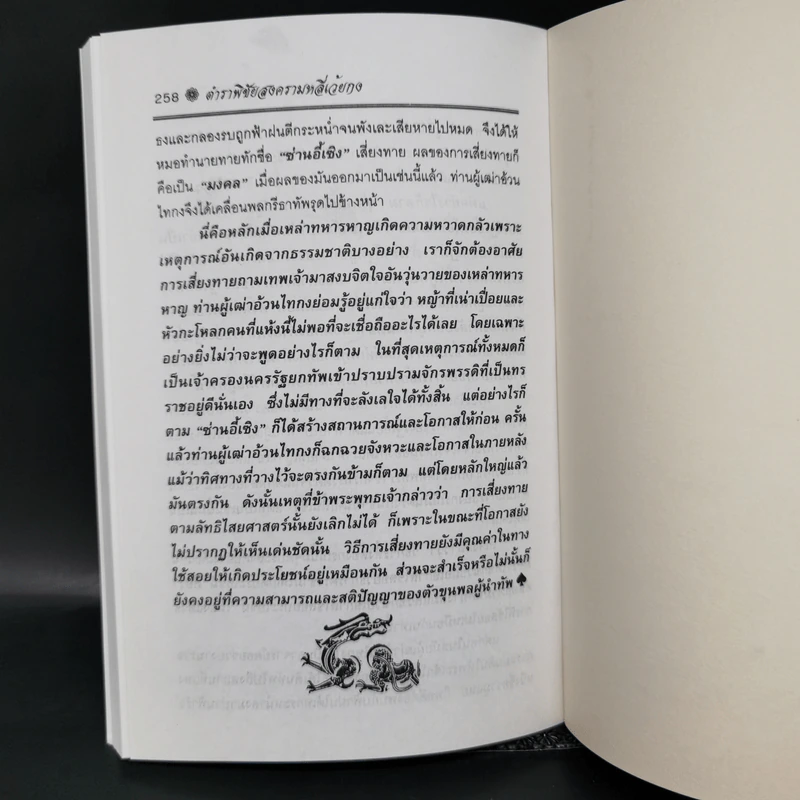 258 ตำราพิชัยสงครามหลี่เว้ยกง
ธงและกลองรบถูกฟ้าฝนตีกระหน่ำจนพังเละเสียหายไปหมด จึงได้ให้
หมอทำนายทายทักชื่อ “ซ่านอี้เซิง” เสี่ยงทาย ผลของการเสี่ยงทายก็
คือเป็น “มงคล” เมื่อผลของมันออกมาเป็นเช่นนี้แล้ว ท่านผู้เฒ่าอ้วน
ไทกงจึงได้เคลื่อนพลกรีธาทัพรุดไปข้างหน้า
นี่คือหลักเมื่อเหล่าทหารหาญเกิดความหวาดกลัวเพราะ
เหตุการณ์อันเกิดจากธรรมชาติบางอย่าง เราก็จักต้องอาศัย
การเสี่ยงทายถามเทพเจ้ามาสงบจิตใจอันวุ่นวายของเหล่าทหาร
หาญ ท่านผู้เฒ่าอ้วนไทกงย่อมรู้อยู่แก่ใจว่า หญ้าที่เน่าเปื่อยและ
หัวกะโหลกคนที่แห้งนี้ไม่พอที่จะเชื่อถืออะไรได้เลย โดยเฉพาะ
อย่างยิ่งไม่ว่าจะพูดอย่างไรก็ตาม ในที่สุดเหตุการณ์ทั้งหมดก็
เป็นเจ้าครองนครรัฐยกทัพเข้าปราบปรามจักรพรรดิที่เป็นทร
ราชอยู่ดีนั่นเอง ซึ่งไม่มีทางที่จะลังเลใจได้ทั้งสิ้น แต่อย่างไรก็
ตาม “ซ่านอี้เซิง” ก็ได้สร้างสถานการณ์และโอกาสให้ก่อน ครั้น
แล้วท่านผู้เฒ่าอ้วนไทกงก็ฉกฉวยจังหวะและโอกาสในภายหลัง
แม้ว่าทิศทางที่วางไว้จะตรงกันข้ามก็ตาม แต่โดยหลักใหญ่แล้ว
มันตรงกัน ดังนั้นเหตุที่ข้าพระพุทธเจ้ากล่าวว่า การเสี่ยงทาย
ตามลัทธิไสยศาสตร์นั้นยังเลิกไม่ได้ ก็เพราะในขณะที่โอกาสยัง
ไม่ปรากฏให้เห็นเด่นชัดนั้น วิธีการเสี่ยงทายยังมีคุณค่าในทาง
ใช้สอยให้เกิดประโยชน์อยู่เหมือนกัน ส่วนจะสำเร็จหรือไม่นั้นก็
ยังคงอยู่ที่ความสามารถและสติปัญญาของตัวขุนพลผู้นำทัพ♠